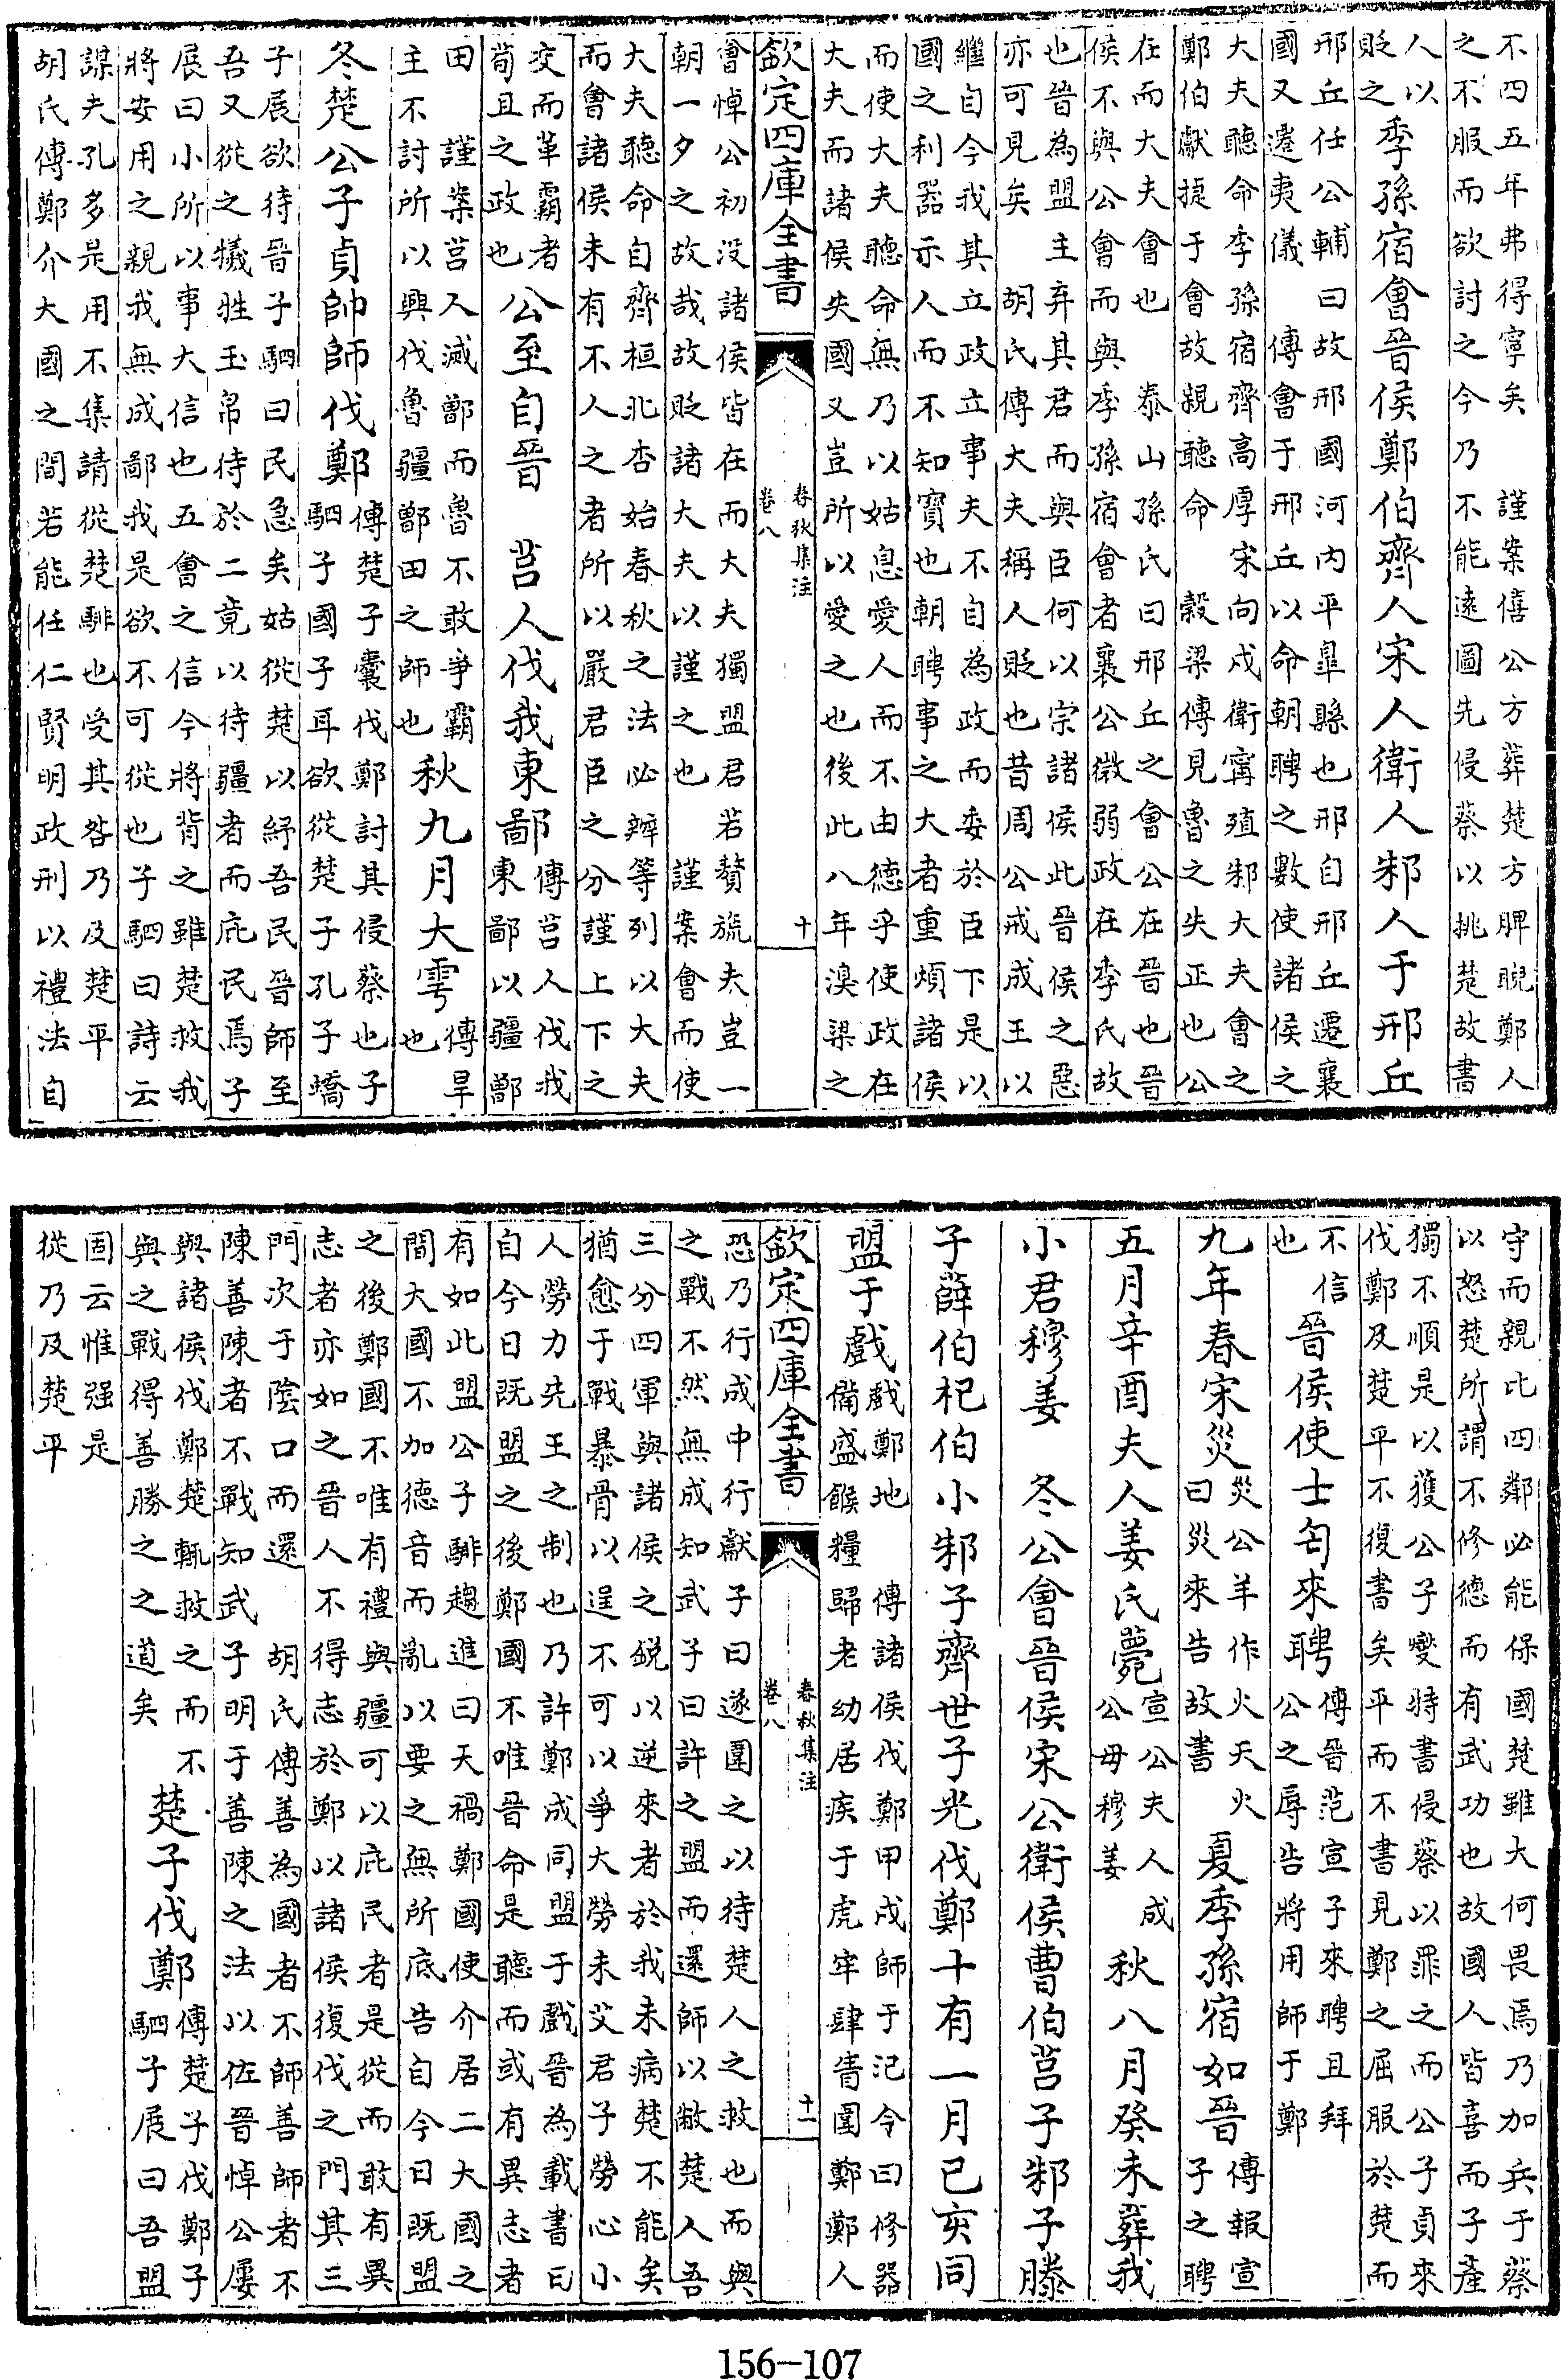 不四五年弗得寧矣　謹案僖公方葬楚方脾睨鄭人
之不服而欲討之今乃　不能遠圖先侵蔡以挑楚故書
人以貶之　季孫宿會晉侯鄭伯齊人宋人衛人邾人于邢丘
邢丘任公輔曰故邢國河内平臯縣也邢自邢丘遷襄
國又遷夷儀　傳會于邢丘以命朝聘之數使諸侯之
大夫聽命季孫宿齊高厚宋向戌衛甯殖邾大夫會之
鄭伯獻捷于會故親聽命　穀梁傳見魯之失正也公
在而大夫會也　泰山孫氏曰邢丘之會公在晉也晉
侯不與公會而與季孫宿會者襄公微弱政在季氏故
也晉為盟主弃其君而與臣何以宗諸侯此晉侯之惡
亦可見矣　胡氏傳大夫稱人貶也昔周公戒成王以
繼自今我其立政立事夫不自為政而委於臣下是以
國之利器示人而不知寳也朝聘事之大者重煩諸侯
而使大夫聽命無乃以姑息愛人而不由德乎使政在
大夫而諸侯失國又豈所以愛之也後此八年溴梁之
欽定四庫全書　春秋集注　卷八　十
會悼公初没諸侯皆在而大夫獨盟君若贅旒夫豈一
朝一夕之故哉故貶諸大夫以謹之也　謹案會而使
大夫聽命自齊桓北杏始春秋之法必辨等列以大夫
而會諸侯未有不人之者所以嚴君臣之分謹上下之
交而革霸者苟且之政也　公至自晉　莒人伐我東鄙　傳莒人伐我東鄙以疆鄫
田　謹案莒人滅鄫而魯不敢爭霸主不討所以興伐魯疆鄫田之師也　秋九月大雩　傳旱也
冬楚公子貞帥師伐鄭　傳楚子囊伐鄭討其侵蔡也子駟子國子耳欲從楚子孔子蟜
子展欲待晉子駟曰民急矣姑從楚以紓吾民晉師至
吾又從之犧牲玉帛待於二竟以待疆者而庇民焉子
展曰小所以事大信也五會之信今將背之雖楚救我
將安用之親我無成鄙我是欲不可從也子駟曰詩云
謀夫孔多是用不集請從楚騑也受其咎乃及楚平
胡氏傳鄭介大國之間若能任仁賢明政刑以禮法自
守而親比四鄰必能保國楚雖大何畏焉乃加兵于蔡
以怒楚所謂不修德而有武功也故國人皆喜而子產
獨不順是以獲公子燮特書侵蔡以罪之而公子貞來
伐鄭及楚平不復書矣平而不書見鄭之屈服於楚而
不信也　晉侯使士匄來聘　傳晉范宣子來聘且拜公之辱告將用師于鄭
九年春宋災　災公羊作火天火曰災來告故書　夏季孫宿如晉　傳報宣子之聘
五月辛酉夫人姜氏薨　宣公夫人成公母穆姜　秋八月癸未葬我
小君穆姜　冬公會晉侯宋公衛侯曹伯莒子邾子滕
子薛伯杞伯小邾子齊世子光伐鄭十有一月己亥同
盟于戲　戲鄭地　傳諸侯伐鄭甲戌師于氾令曰修器
備盛餱糧歸老幼居疾于虎牢肆眚圍鄭鄭人
欽定四庫全書　春秋集注　卷八　十一
恐乃行成中行獻子曰遂圍之以待楚人之救也而與
之戰不然無成知武子曰許之盟而還師以敝楚人吾
三分四軍與諸侯之銳以逆來者於我未病楚不能矣
猶愈于戰暴骨以逞不可以爭大勞未艾君子勞心小
人勞力先王之制也乃許鄭成同盟于戲晉為載書曰
自今日既盟之後鄭國不唯晉命是聽而或有異志者
有如此盟公子騑趨進曰天禍鄭國使介居二大國之
間大國不加德音而亂以要之無所底告自今日既盟
之後鄭國不唯有禮與彊可以庇民者是從而敢有異
志者亦如之晉人不得志於鄭以諸侯復伐之門其三
門次于陰口而還　胡氏傳善為國者不師善師者不
陳善陳者不戰知武子明于善陳之法以佐晉悼公屢
與諸侯伐鄭楚輒救之而不與之戰得善勝之之道矣　楚子伐鄭　傳楚子伐鄭子駟子展曰吾盟
固云惟强是從乃及楚平
156-107